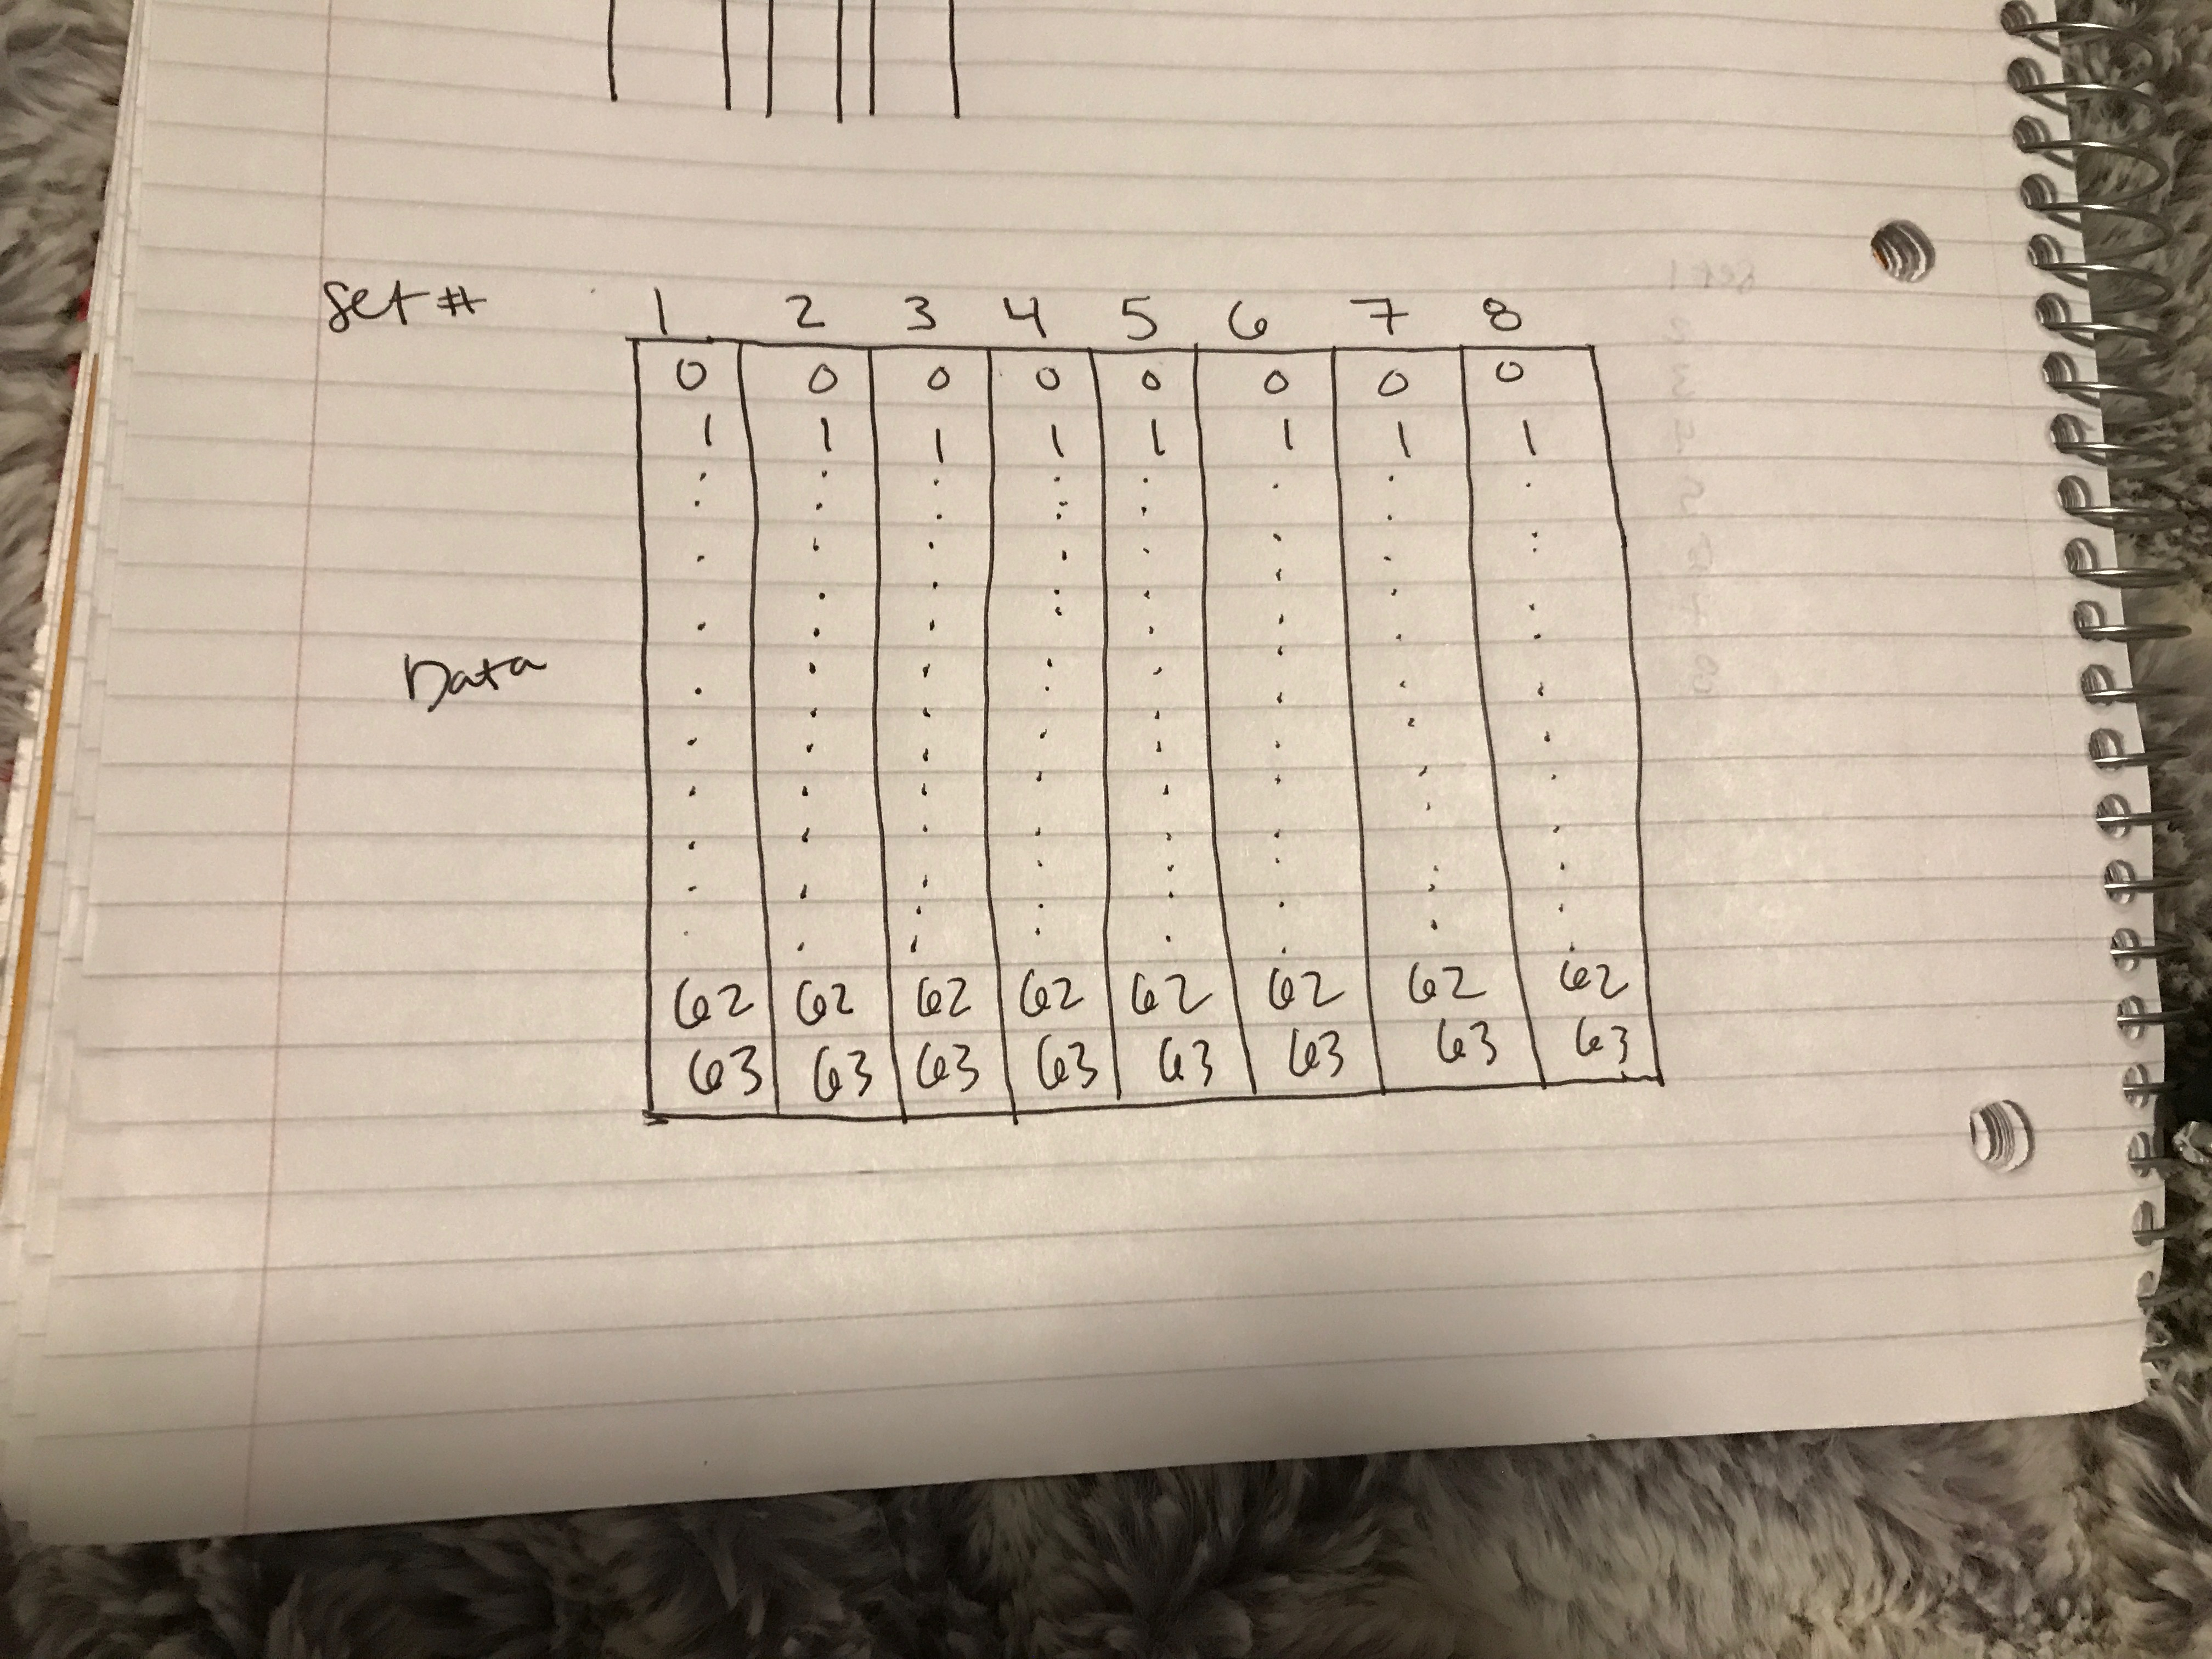 Set # 1 2 3 4 5 6 7 8
0 0 0 0 0 0 0 0
1 1 1 1 1 1 1 1
Data
62 62 62 62 62 62 62 62
63 63 63 63 63 63 63 63